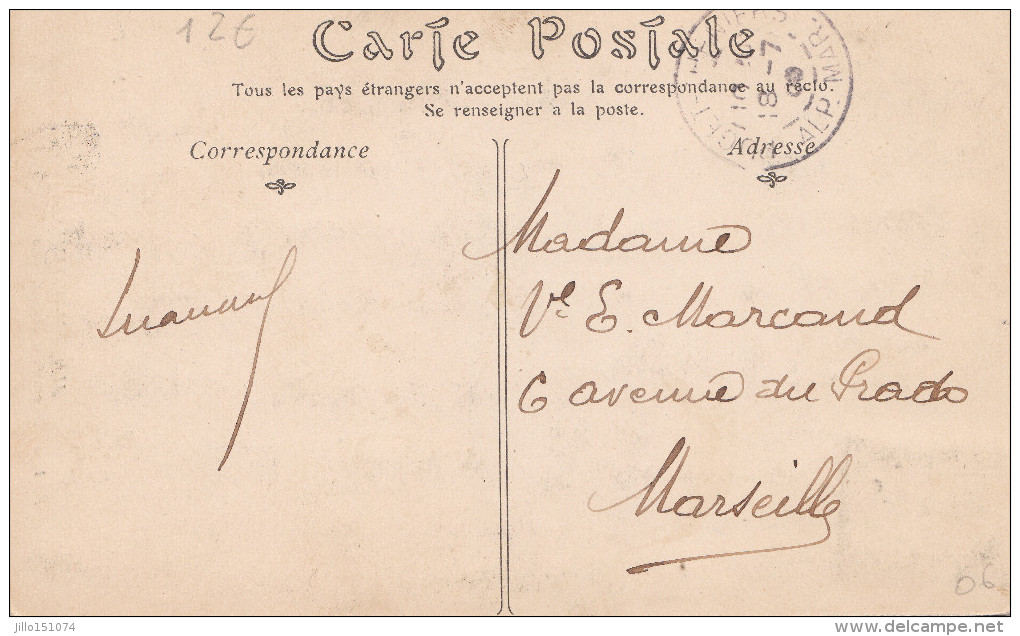 12€
Carte Postale
Tous les pays étrangers n'acceptent pas la correspondance au recto.
Se renseigner à la poste.
Correspondance
Adresse
ALP. MAR.
Madame
Ve E. Marcaud
6 avenue du Prado
Marseille
06
jillo151074
www.delcampe.net